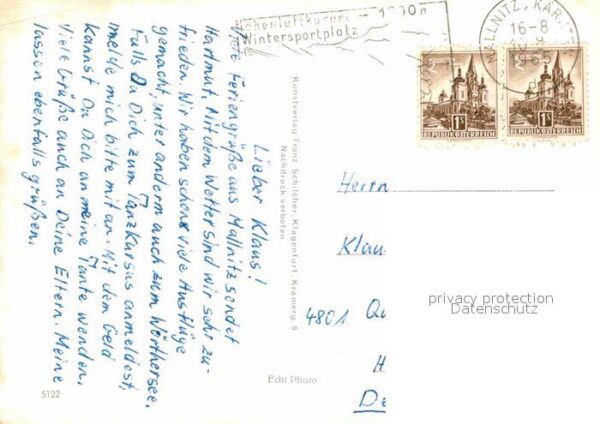 Höhenluftkurort 1200m
Wintersportplatz
MALLNITZ, KÄR
16-8
1S
REPUBLIK ÖSTERREICH
1S
REPUBLIK ÖSTERREICH
Lieber Klaus!
Viele Feriengrüße aus Mallnitz sendet
Hartmut. Mit dem Wetter sind wir sehr zu-
frieden. Wir haben schon viele Ausflüge
gemacht, unter anderm auch zum Wörthersee.
Falls Du Dich zum Tanzkursus anmeldest,
melde mich bitte mit an. Mit dem Geld
kannst Du Dich an meine Tante wenden.
Viele Grüße auch an Deine Eltern. Meine
lassen ebenfalls grüßen.
Kunstverlag Franz Schilcher Klagenfurt, Kramerg. 9
Nachdruck verboten.
Herrn
Klau
4801 Qu
H
De
privacy protection
Datenschutz
Echt Photo
5122